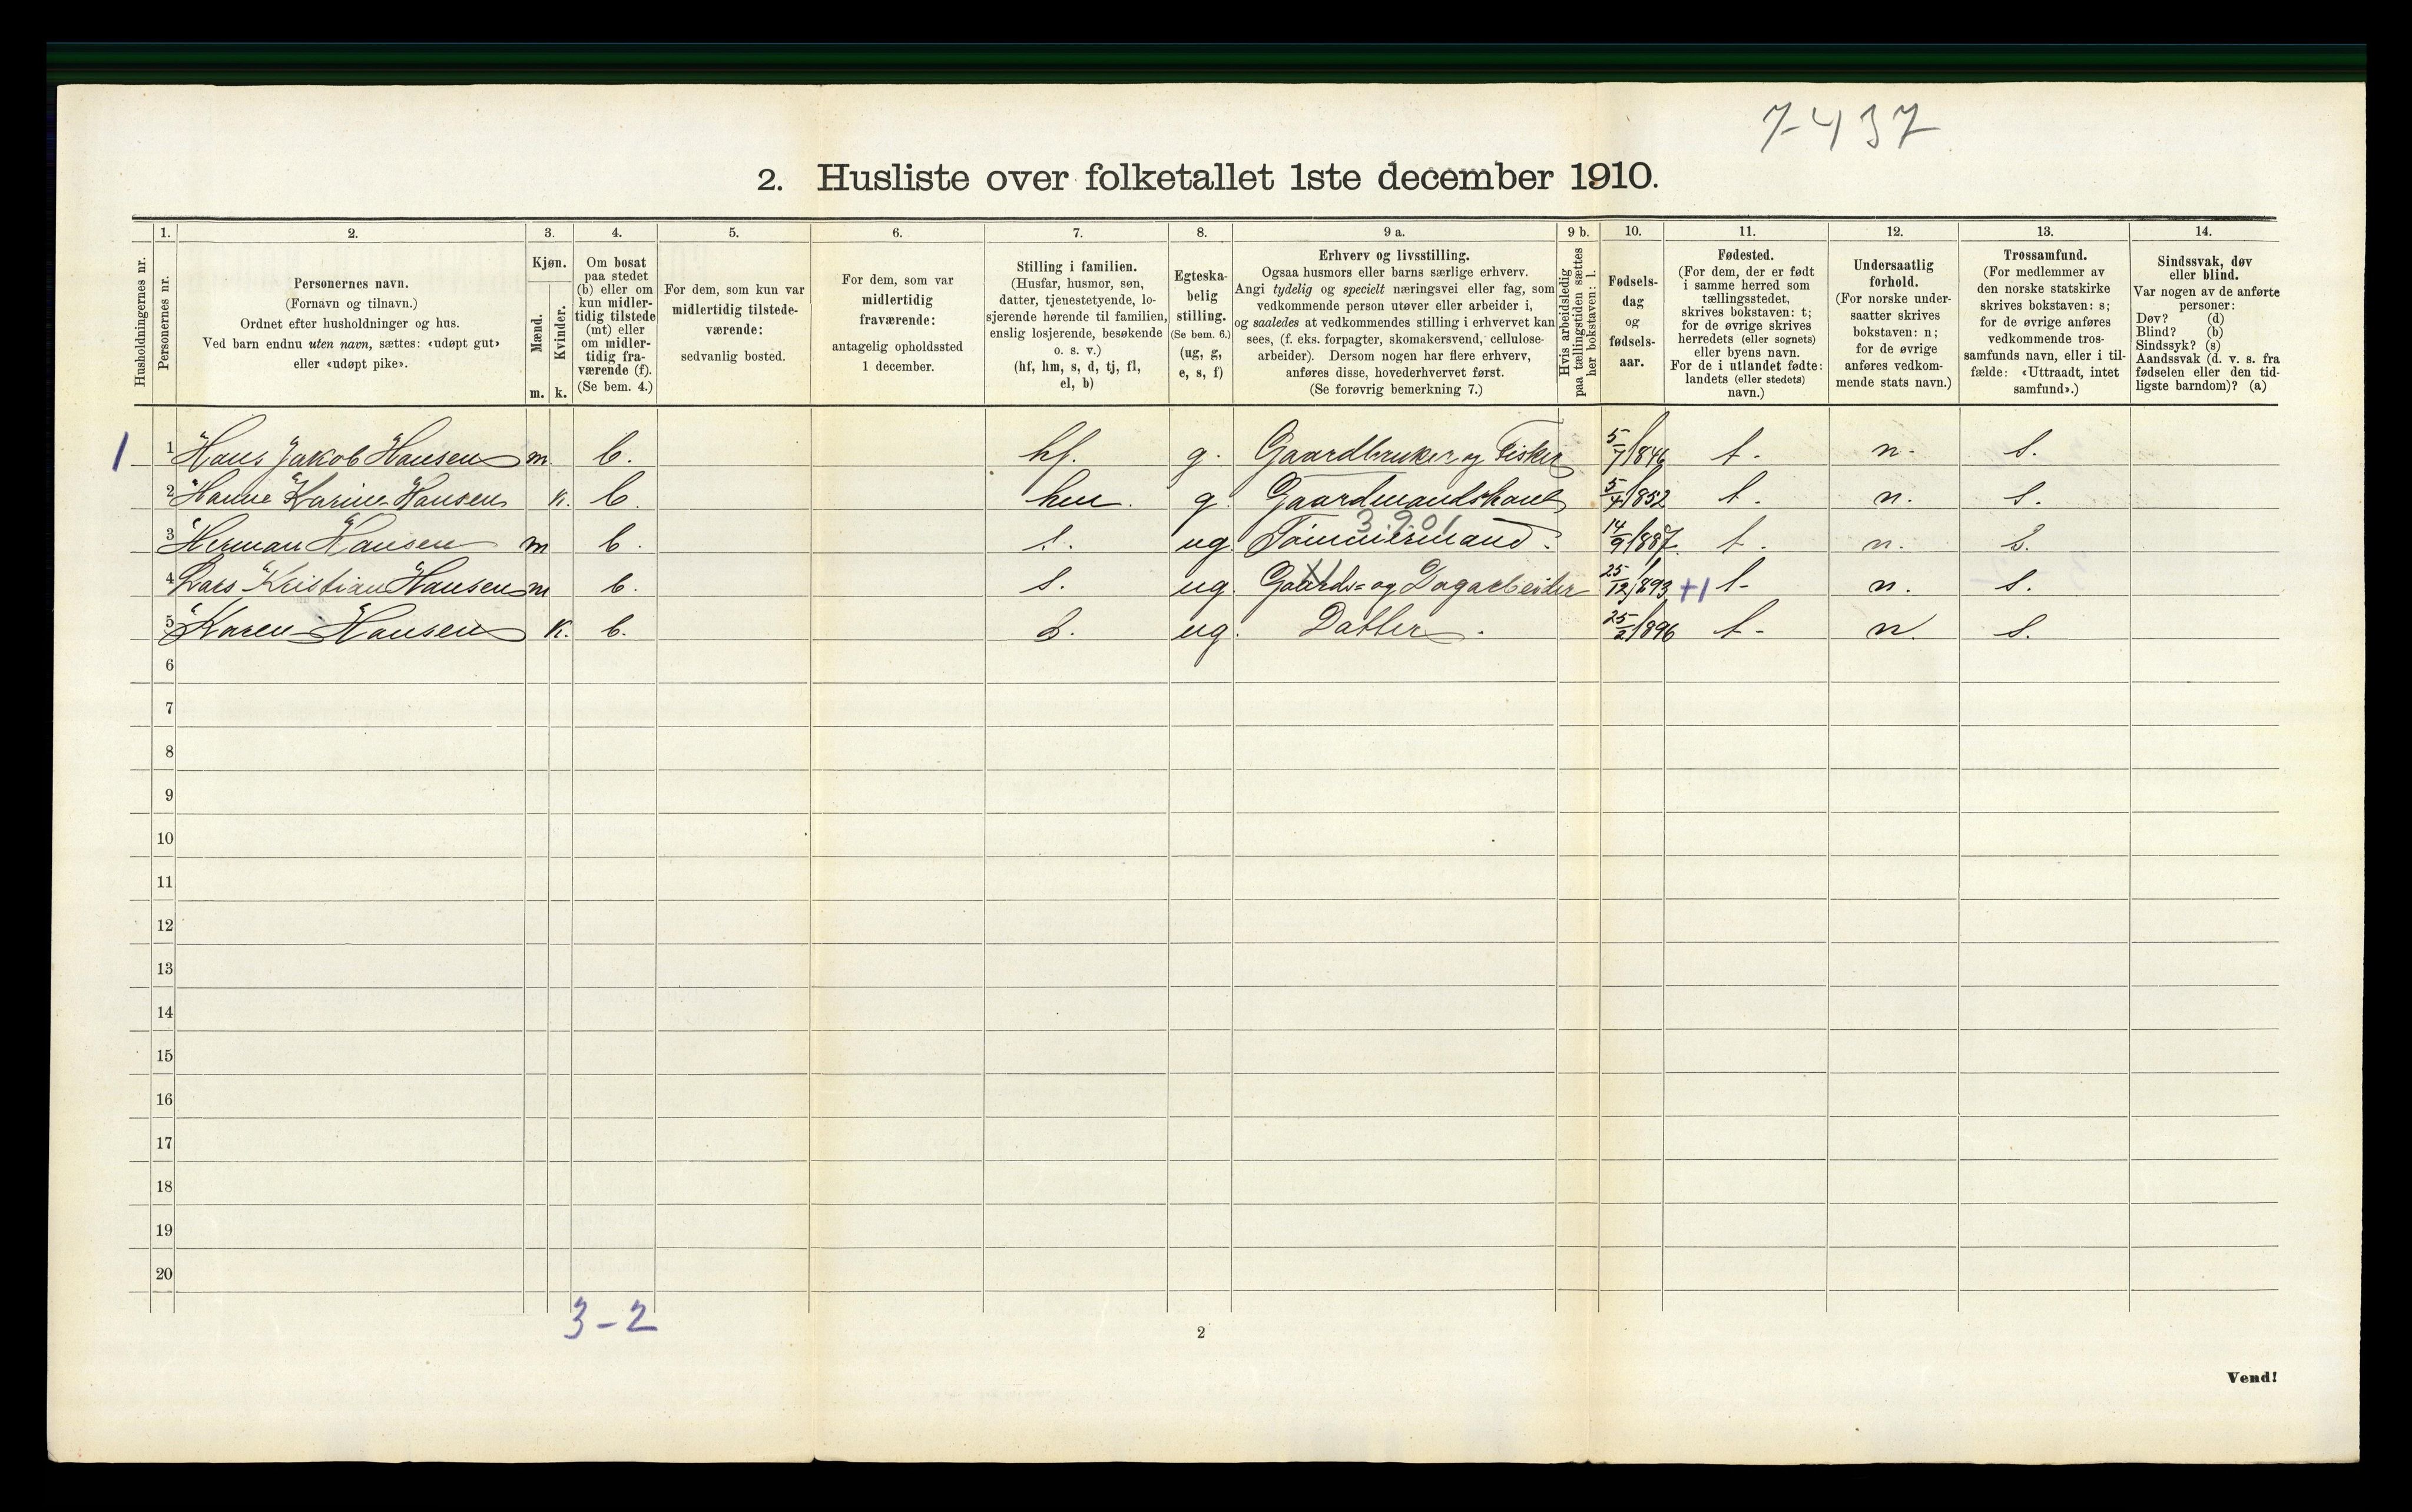 7-437
2. Husliste over folketallet 1ste december 1910.
Husholdningernes nr.
1.
Personernes nr.
2.
Personernes navn.
(Fornavn og tilnavn.)
Ordnet efter husholdninger og hus.
Ved barn endnu uten navn, sættes: «udøpt gut»
eller «udøpt pike».
3.
Kjøn.
Mænd.
Kvinder.
m. k.
4.
Om bosat
paa stedet
(b) eller om
kun midler-
tidig tilstede
(mt) eller
om midler-
tidig fra-
værende (f).
(Se bem. 4.)
5.
For dem, som kun var
midlertidig tilstede-
værende:
sedvanlig bosted.
6.
For dem, som var
midlertidig
fraværende:
antagelig opholdssted
1 december.
7.
Stilling i familien.
(Husfar, husmor, søn,
datter, tjenestetyende, lo-
sjerende hørende til familien,
enslig losjerende, besøkende
o. s. v.)
(hf, hm, s, d, tj, fl,
el, b)
8.
Egteska-
belig
stilling.
(Se bem. 6.)
(ug, g,
e, s, f)
9 a.
Erhverv og livsstilling.
Ogsaa husmors eller barns særlige erhverv.
Angi tydelig og specielt næringsvei eller fag, som
vedkommende person utøver eller arbeider i,
og saaledes at vedkommendes stilling i erhvervet kan
sees, (f. eks. forpagter, skomakersvend, cellulose-
arbeider). Dersom nogen har flere erhverv,
anføres disse, hovederhvervet først.
(Se forøvrig bemerkning 7.)
9 b.
Hvis arbeidsledig
paa tællingstiden sættes
her bokstaven: l.
10.
Fødsels-
dag
og
fødsels-
aar.
11.
Fødested.
(For dem, der er født
i samme herred som
tællingsstedet,
skrives bokstaven: t;
for de øvrige skrives
herredets (eller sognets)
eller byens navn.
For de i utlandet fødte:
landets (eller stedets)
navn.)
12.
Undersaatlig
forhold.
(For norske under-
saatter skrives
bokstaven: n;
for de øvrige
anføres vedkom-
mende stats navn.)
13.
Trossamfund.
(For medlemmer av
den norske statskirke
skrives bokstaven: s;
for de øvrige anføres
vedkommende tros-
samfunds navn, eller i til-
fælde: «Uttraadt, intet
samfund».)
14.
Sindssvak, døv
eller blind.
Var nogen av de anførte
personer:
Døv? (d)
Blind? (b)
Sindssyk? (s)
Aandssvak (d. v. s. fra
fødselen eller den tid-
ligste barndom)? (a)
1 1 Hans Jakob Hansen m. b. hf. g. Gaardbruker og Fisker 5/7 1846 t. n. s.
2 Hanne Karine Hansen k. b. hm. g. Gaardmandskone 5/4 1852 t. n. s.
3.901
3 Herman Hansen m b. s. ug. Tømmermand. 14/9 1887. t. n. s.
4 Lars Kristian Hansen m b. s. ug. Gaards= og Dagarbeider 25/12 1893 +1 t- n. s.
5 Karen Hansen k. b. d. ug. Datter. 25/2 1896 t- n. s.
6
7
8
9
10
11
12
13
14
15
16
17
18
19
20
3-2
2
Vend!